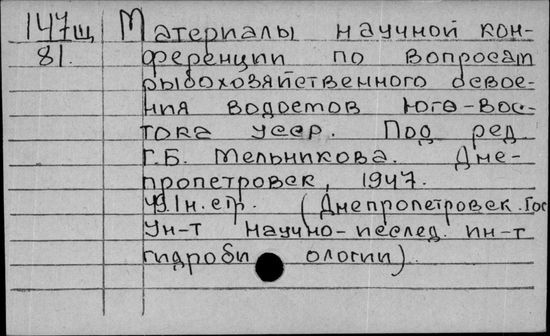 147щ Материалы научной кон-
81. ференции по вопросам
рыбохозяйственного освое-
ния водоемов Юго-Вос-
тока УССР. Под ред
Г.Б. Мельникова. Дне-
пропетровск, 1947.
491н.стр. (Днепропетровск. Гос
Ун-т Научно-исслед. ин-т
гидроби ологии).